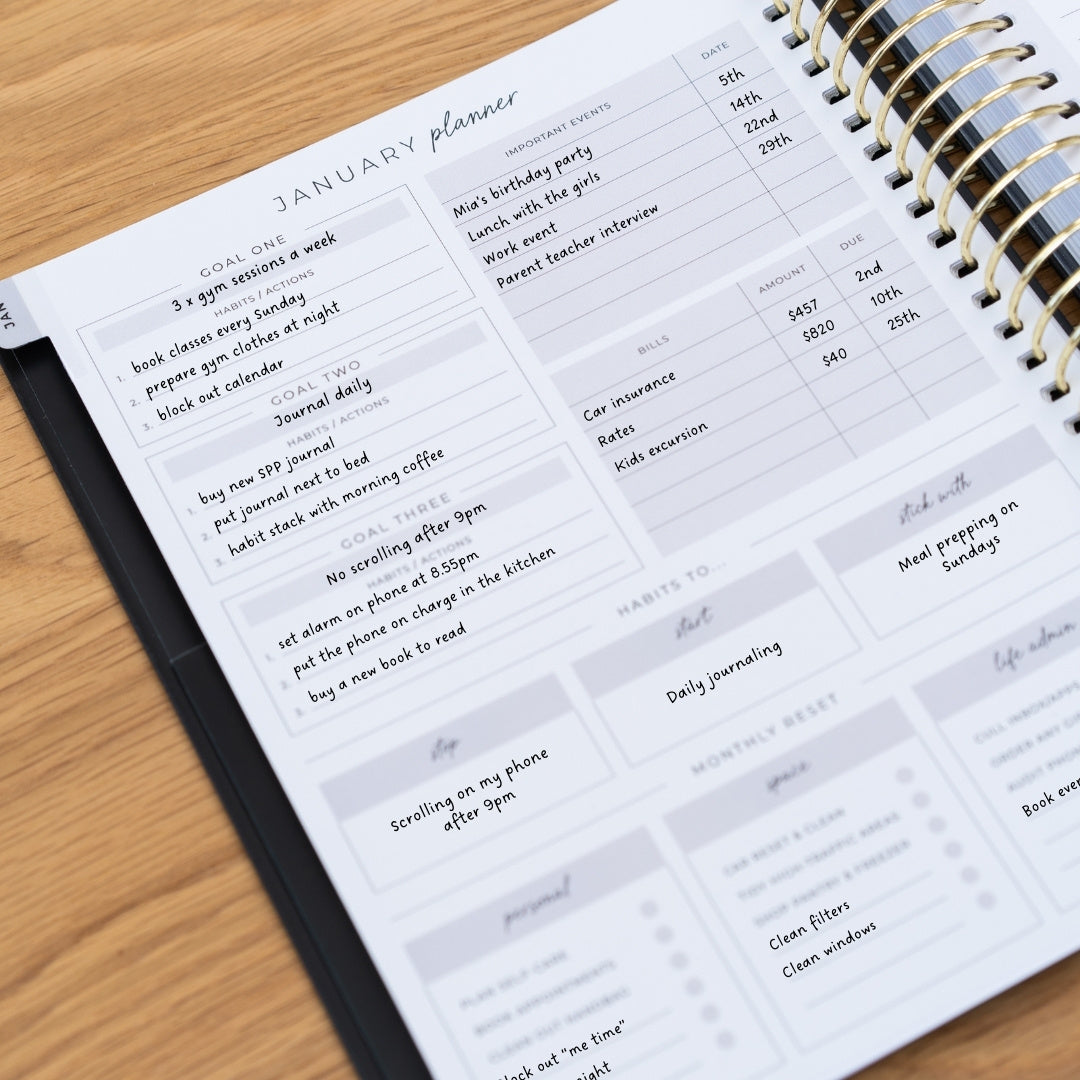 JAN
JANUARY planner
GOAL ONE
3 x gym sessions a week
HABITS / ACTIONS
1. book classes every Sunday
2. prepare gym clothes at night
3. block out calendar
GOAL TWO
Journal daily
HABITS / ACTIONS
1. buy new SPP journal
2. put journal next to bed
3. habit stack with morning coffee
GOAL THREE
No scrolling after 9pm
HABITS / ACTIONS
1. set alarm on phone at 8.55pm
2. put the phone on charge in the kitchen
3. buy a new book to read
IMPORTANT EVENTS DATE
Mia's birthday party 5th
Lunch with the girls 14th
Work event 22nd
Parent teacher interview 29th
BILLS AMOUNT DUE
Car insurance $457 2nd
Rates $820 10th
Kids excursion $40 25th
HABITS TO...
stop
Scrolling on my phone
after 9pm
start
Daily journaling
stick with
Meal prepping on
Sundays
MONTHLY RESET
personal
PLAN SELF CARE
BOOK APPOINTMENTS
CLEAR OUT HANDBAG
lock out "me time"
night
space
CAR RESET & CLEAN
TIDY HIGH TRAFFIC AREAS
SHOP PANTRY & FREEZER
Clean filters
Clean windows
life admin
CULL INBOX/APPS
ORDER ANY
AUDIT
Book ever